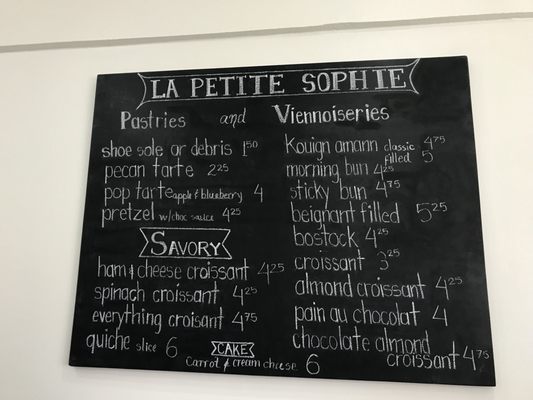 LA PETITE SOPHIE
Pastries and Viennoiseries
shoe sole or debris 1.50
pecan tarte 2.25
pop tarte apple & blueberry 4
pretzel w/choc sauce 4.25
SAVORY
ham & cheese croissant 4.25
spinach croissant 4.25
everything croisant 4.75
quiche slice 6
Kouign amann classic 4.75
filled 5
morning bun 4.25
sticky bun 4.75
beignant filled 5.25
bostock 4.25
croissant 3.25
almond croissant 4.25
pain au chocolat 4
chocolate almond
croissant 4.75
CAKE
Carrot & cream cheese 6